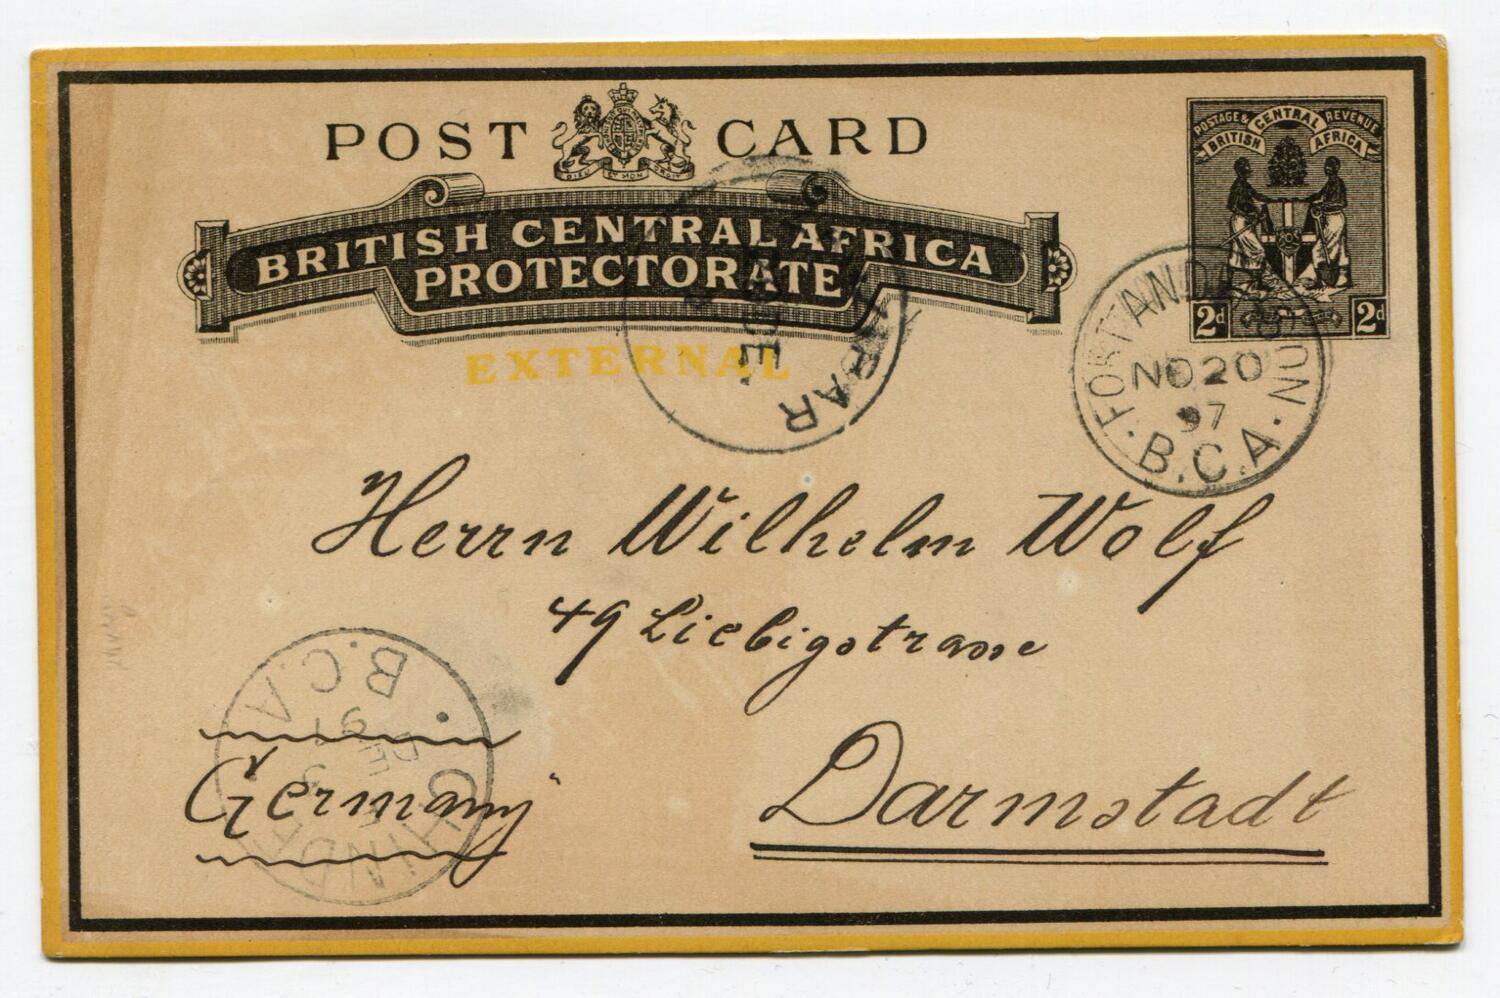 POST CARD
DIEU ET MON DROIT
POSTAGE & REVENUE
BRITISH CENTRAL AFRICA
2d 2d
BRITISH CENTRAL AFRICA
PROTECTORATE
EXTERNAL
ZANZIBAR
DE
FORT ANDERSON
NO 20
97
B.C.A.
Herrn Wilhelm Wolf
49 Liebigstrasse
Darmstadt
Germany
CHINDE
B.C.A.
DE
97